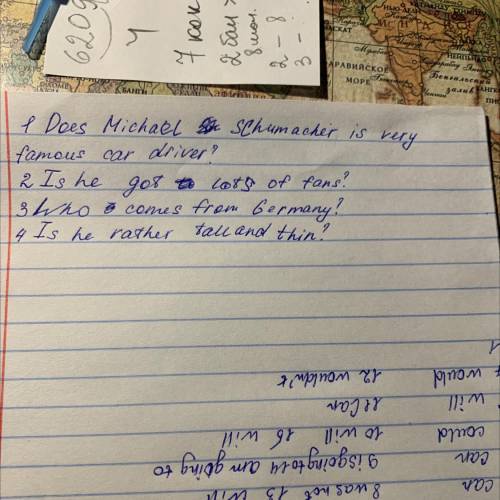 6209
4
7 кон
2 бан
8 шол.
2 - 8
3 -
АРАВИЙСКОЕ
МОРЕ
Бенгальский
залив
1 Does Michael Schumacher is very
famous car driver?
2 Is he got lots of fans?
3 Who comes from Germany?
4 Is he rather tall and thin?
1
would 12 wouldn't
will 11 Can
could 10 will 16 will
can 9 is going to 14 am going to
can 8 was not 13 will